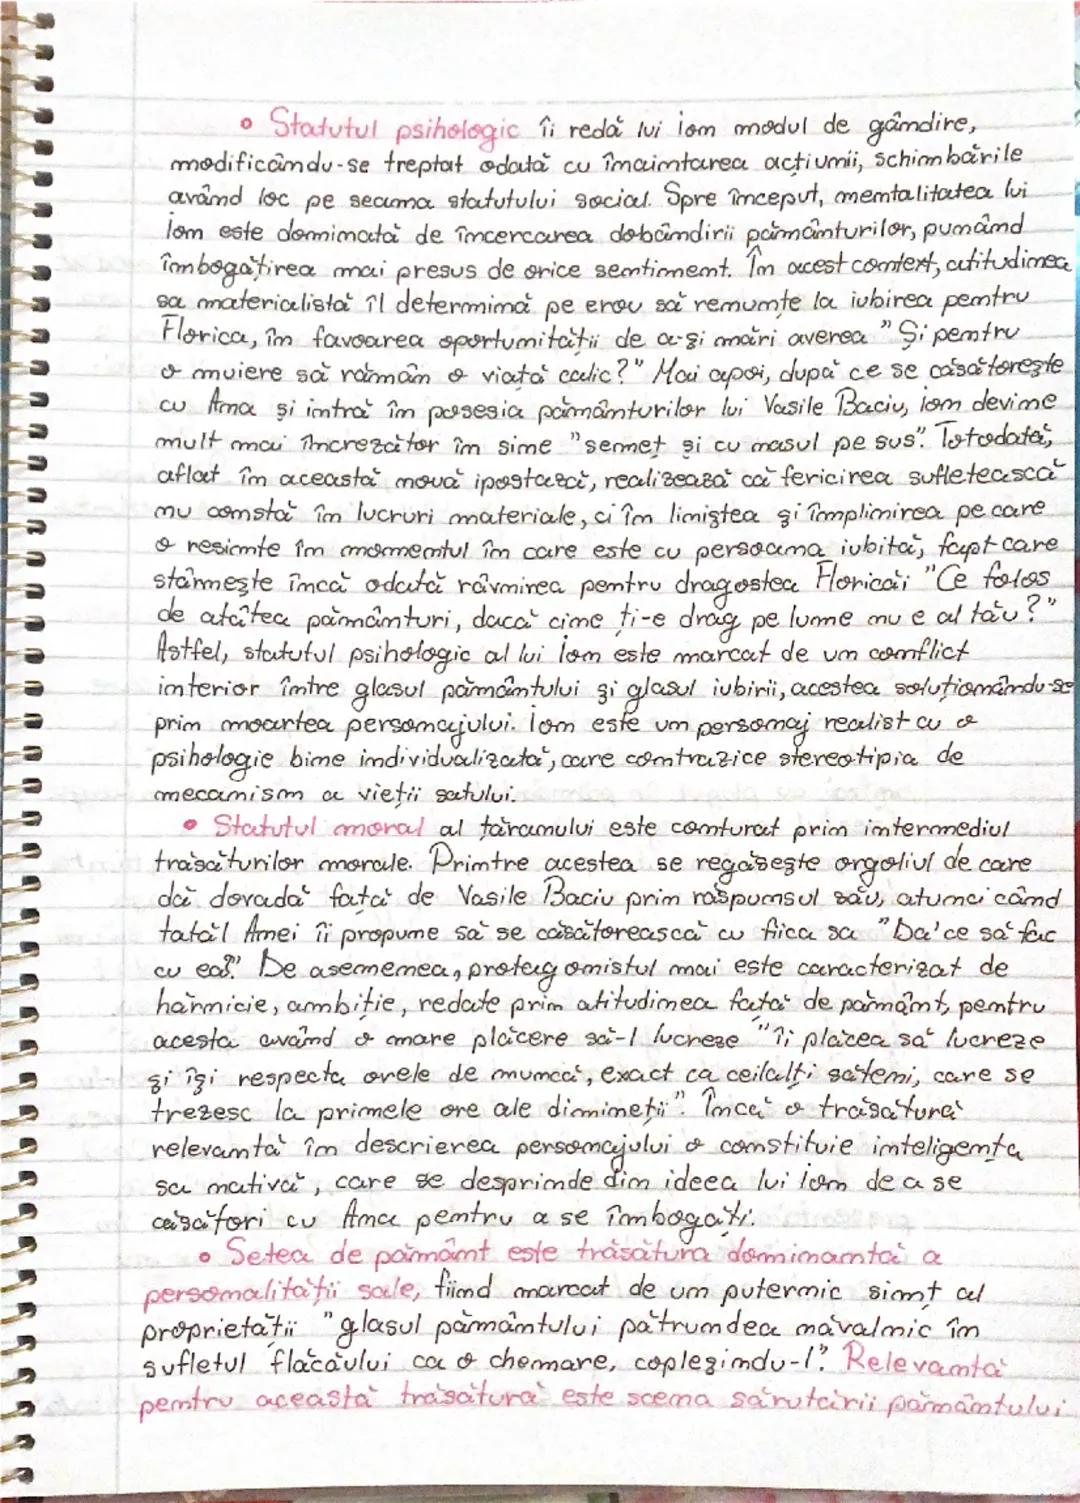 • Statutul psihologic îi redă lui Ion modul de gândire,
modificându-se treptat odată cu înaintarea acțiunii, schimbările
având loc pe seama statutului social. Spre început, mentalitatea lui
Ion este dominată de încercarea dobândirii pământurilor, punând
îmbogățirea mai presus de orice sentiment. În acest context, atitudinea
sa materialistă îl determină pe erou să renunțe la iubirea pentru
Florica, în favoarea oportunității de a-și mări averea "Și pentru
o muiere să rămân o viață calic?" Mai apoi, după ce se căsătorește
cu Ana și intră în posesia pământurilor lui Vasile Baciu, Ion devine
mult mai încrezător în sine "semeț și cu nasul pe sus". Totodată,
aflat în această nouă ipostază, realizează că fericirea sufletească
nu constă în lucruri materiale, ci în liniștea și împlinirea pe care
o resimte în momentul în care este cu persoana iubită, fapt care
stârnește încă odată râvnirea pentru dragostea Floricăi "Ce folos
de atâtea pământuri, dacă cine ți-e drag pe lume nu e al tău?"
Astfel, statutul psihologic al lui Ion este marcat de un conflict
interior între glasul pământului și glasul iubirii, acestea soluționându-se
prin moartea personajului. Ion este un personaj realist cu o
psihologie bine individualizată, care contrazice stereotipia de
mecanism a vieții satului.
• Statutul moral al țăranului este conturat prin intermediul
trăsăturilor morale. Printre acestea se regăsește orgoliul de care
dă dovadă față de Vasile Baciu prin răspunsul său, atunci când
tatăl Anei îi propune să se căsătorească cu fiica sa "Da'ce să fac
cu ea?." De asemenea, protagonistul mai este caracterizat de
hărnicie, ambiție, redate prin atitudinea față de pământ, pentru
acesta având o mare plăcere să-l lucreze "îi plăcea să lucreze
și își respecta orele de muncă, exact ca ceilalți săteni, care se
trezesc la primele ore ale dimineții". Încă o trăsătură
relevantă în descrierea personajului o constituie inteligența
sa nativă, care se desprinde din ideea lui Ion de a se
căsători cu Ana pentru a se îmbogăți.
• Setea de pământ este trăsătura dominantă a
personalității sale, fiind marcat de un puternic simț al
proprietății "glasul pământului pătrundea năvalnic în
sufletul flăcăului ca o chemare, copleșindu-l". Relevantă
pentru această trăsătură este scena sărutării pământului